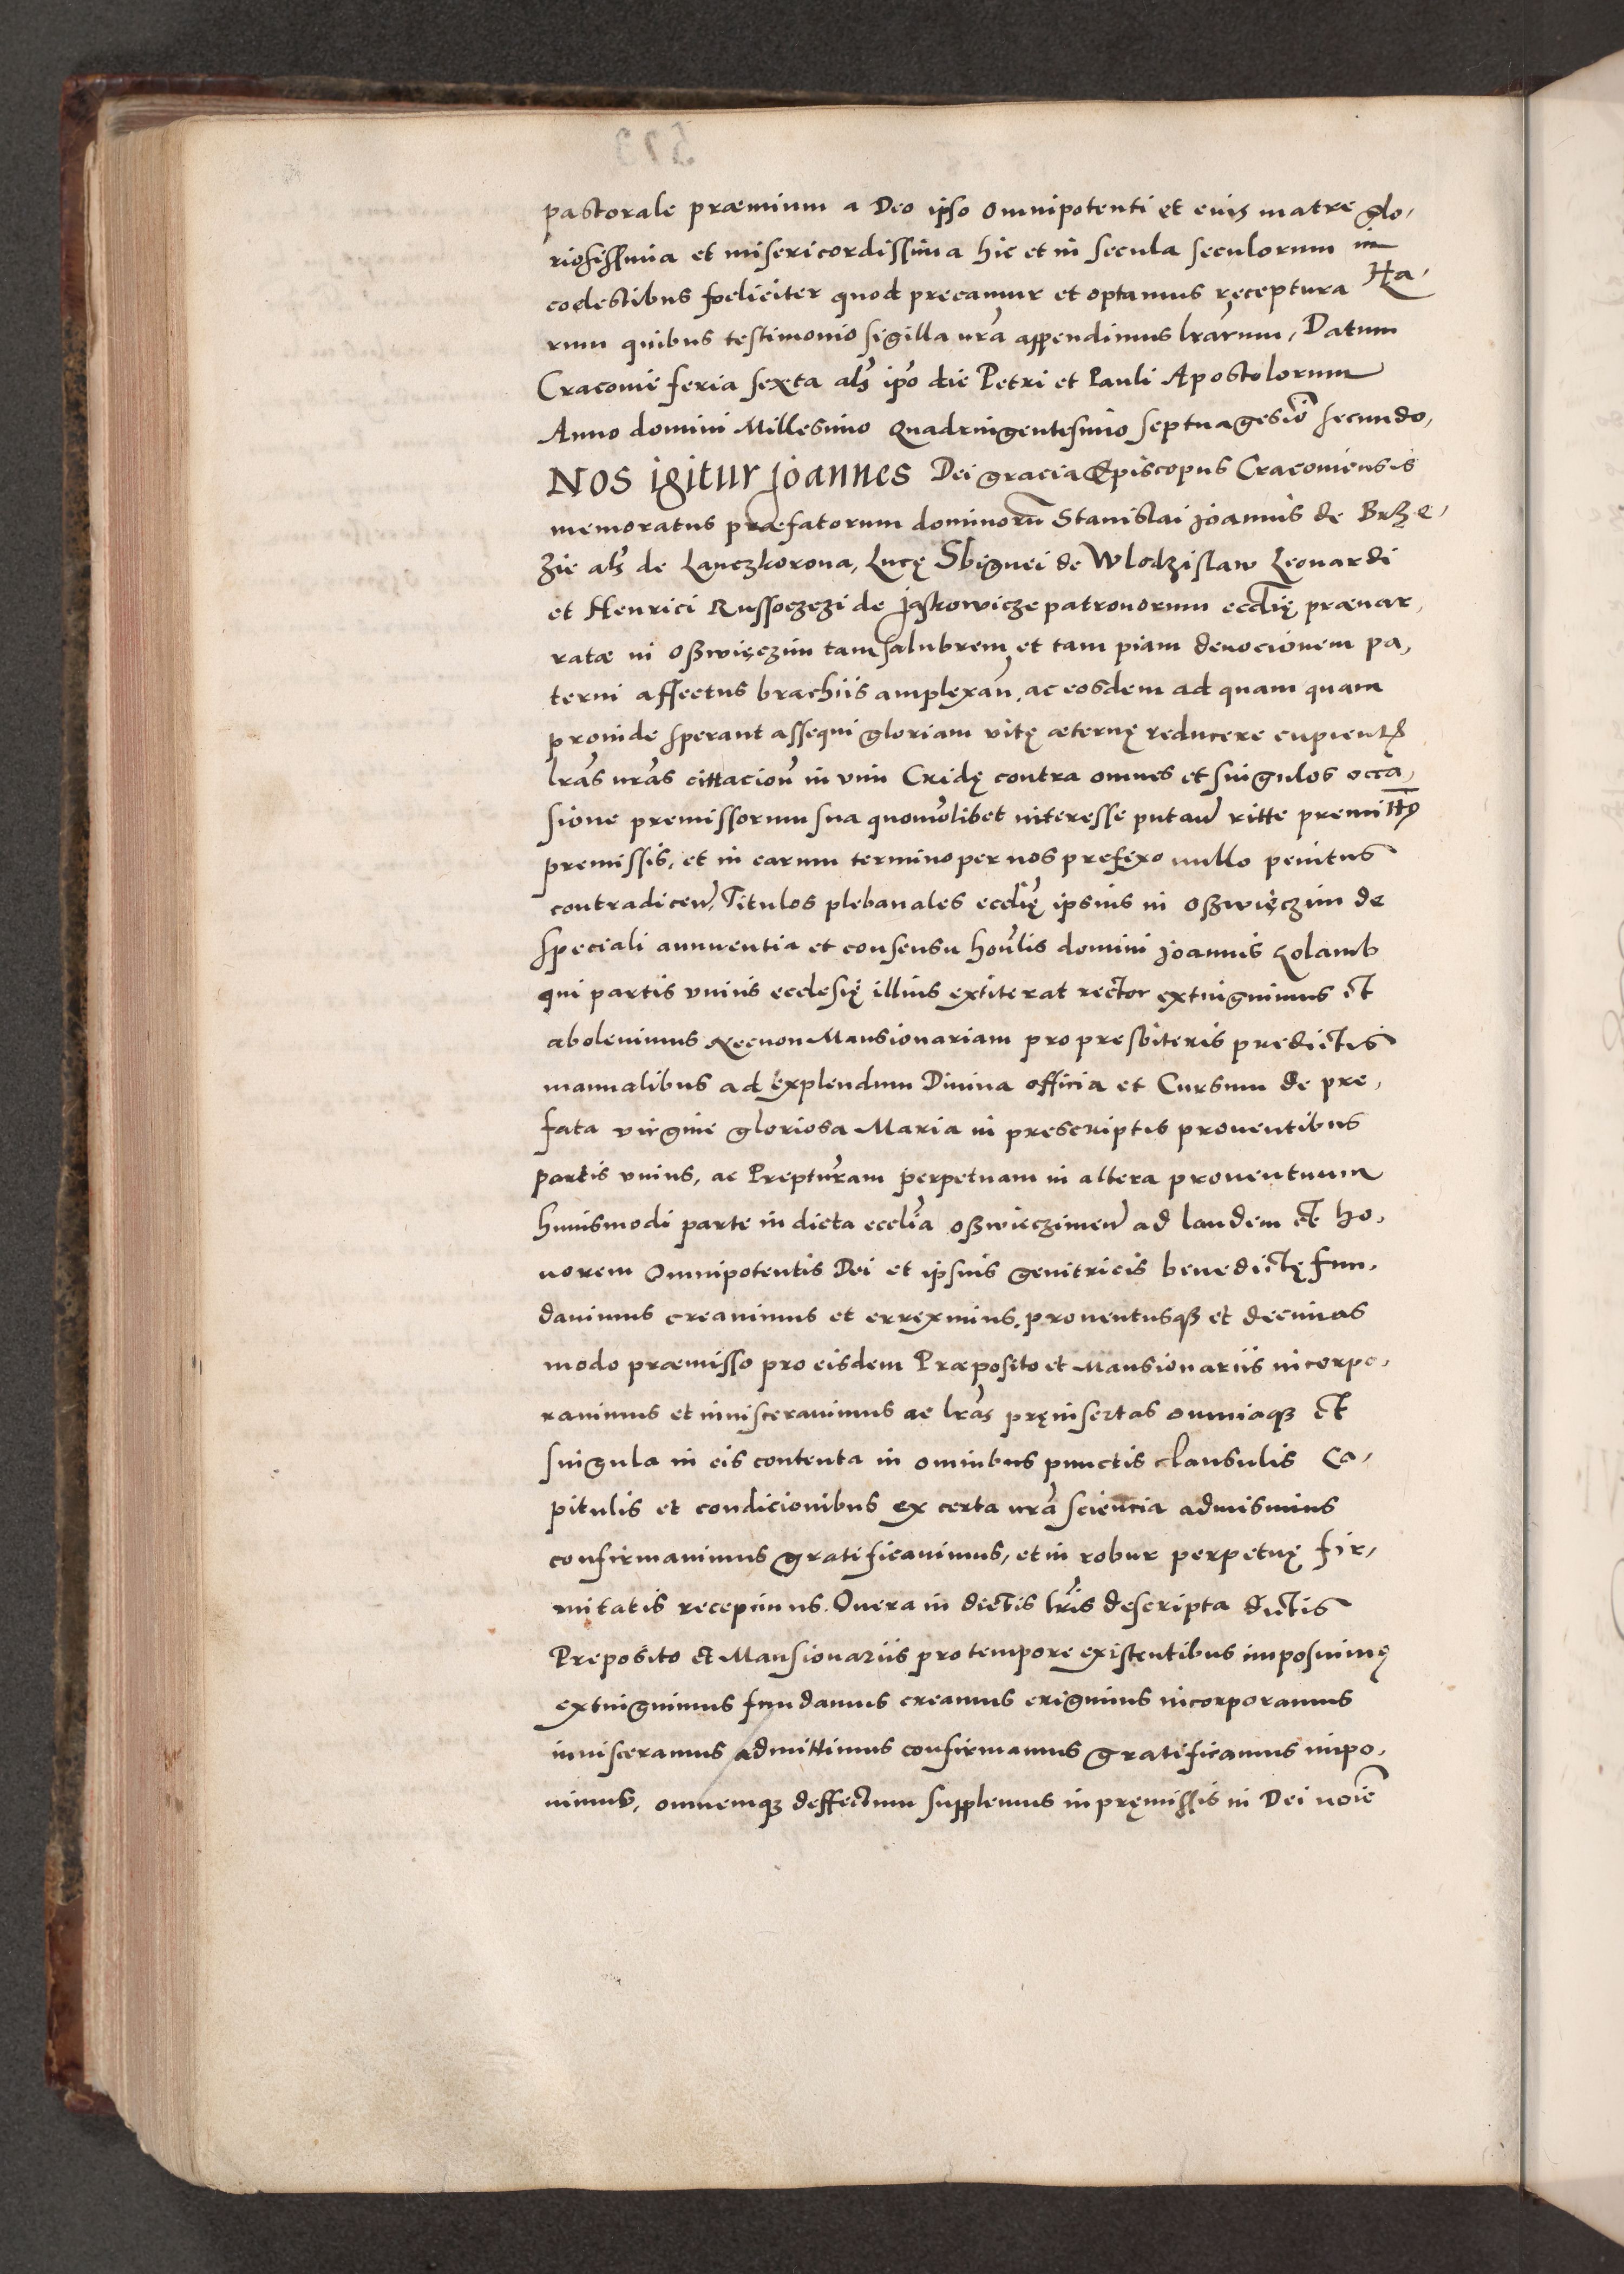 pastorale præmium a Deo ipso Omnipotenti et euis matre glo,
riosissima et misericordissima hic et in secula seculorum in
coelestibus foeliciter quod precamur et optamus receptura Ha,
rum quibus testimonio sigilla nrã appendimus lrarum, Datum
Cracovie feria sexta als ipo die Petri et Pauli Apostolorum
Anno domini Millesimo Quadringentesimo septuagesiõ secundo,
Nos igitur Joannes Dei gracia Episcopus Cracoviensis
memoratus præfatorum dominorũ Stanislai Joannis de Brze,
zie als de Lanczkorona, Lucę Sbignei de Wlodzislaw Leonardi
et Henrici Russoczczi de Jaskowicze patronorum ecclię prænar,
ratæ in Oswięczim tam salubrem et tam piam devocionem pa,
terni affectus brachiis amplexan, ac eosdem ad quam quam
provide sperant assequi gloriam vitę æternę reducere cupientes
lras nras cittacion in vim Cridę contra omnes et singulos occa,
sione premissorum sua quomolibet interesse putan ritte premitty
premissis, et in earum termino per nos prefixo nullo penitus
contradicen, Titulos plebanales ecclię ipsius in Oswięczim de
speciali annuentia et consensu honlis domini Joannis Golamb
qui partis unius ecclesię illius extiterat rector extinguimus et
abolevimus Necnon Mansionariam pro presbiteris predictis
manualibus ad explendum Divina officia et Cursum de pre,
fata virgine gloriosa Maria in prescriptis proventibus
partis unius, ac Prepturam perpetuam in altera proventuum
huiusmodi parte in dicta ecclia Oswieczimen ad laudem et ho,
norem Omnipotentis Dei et ipsius genitricis benedictę fun,
davimus creavimus et erreximus, proventusq3 et decimas
modo præmisso pro eisdem Præposito et Mansionariis incorpo,
ravimus et invisceravimus ac lras pręinsertas omniaq3 et
singula in eis contenta in omnibus punctis clausulis Ca,
pitulis et condicionibus ex certa nrã sciencia admisimus
confirmavimus gratificavimus, et in robur perpetuę fir,
mitatis recepimus. Onera in dictis lris descripta dictis
Preposito et Mansionariis pro tempore existentibus imposuimq
extinguimus fundamus creamus erigimus incorporamus
invisceramus admittimus confirmamus gratificamus impo,
nimus, omnemq3 deffectum supplemus in pręmissis in Dei noie